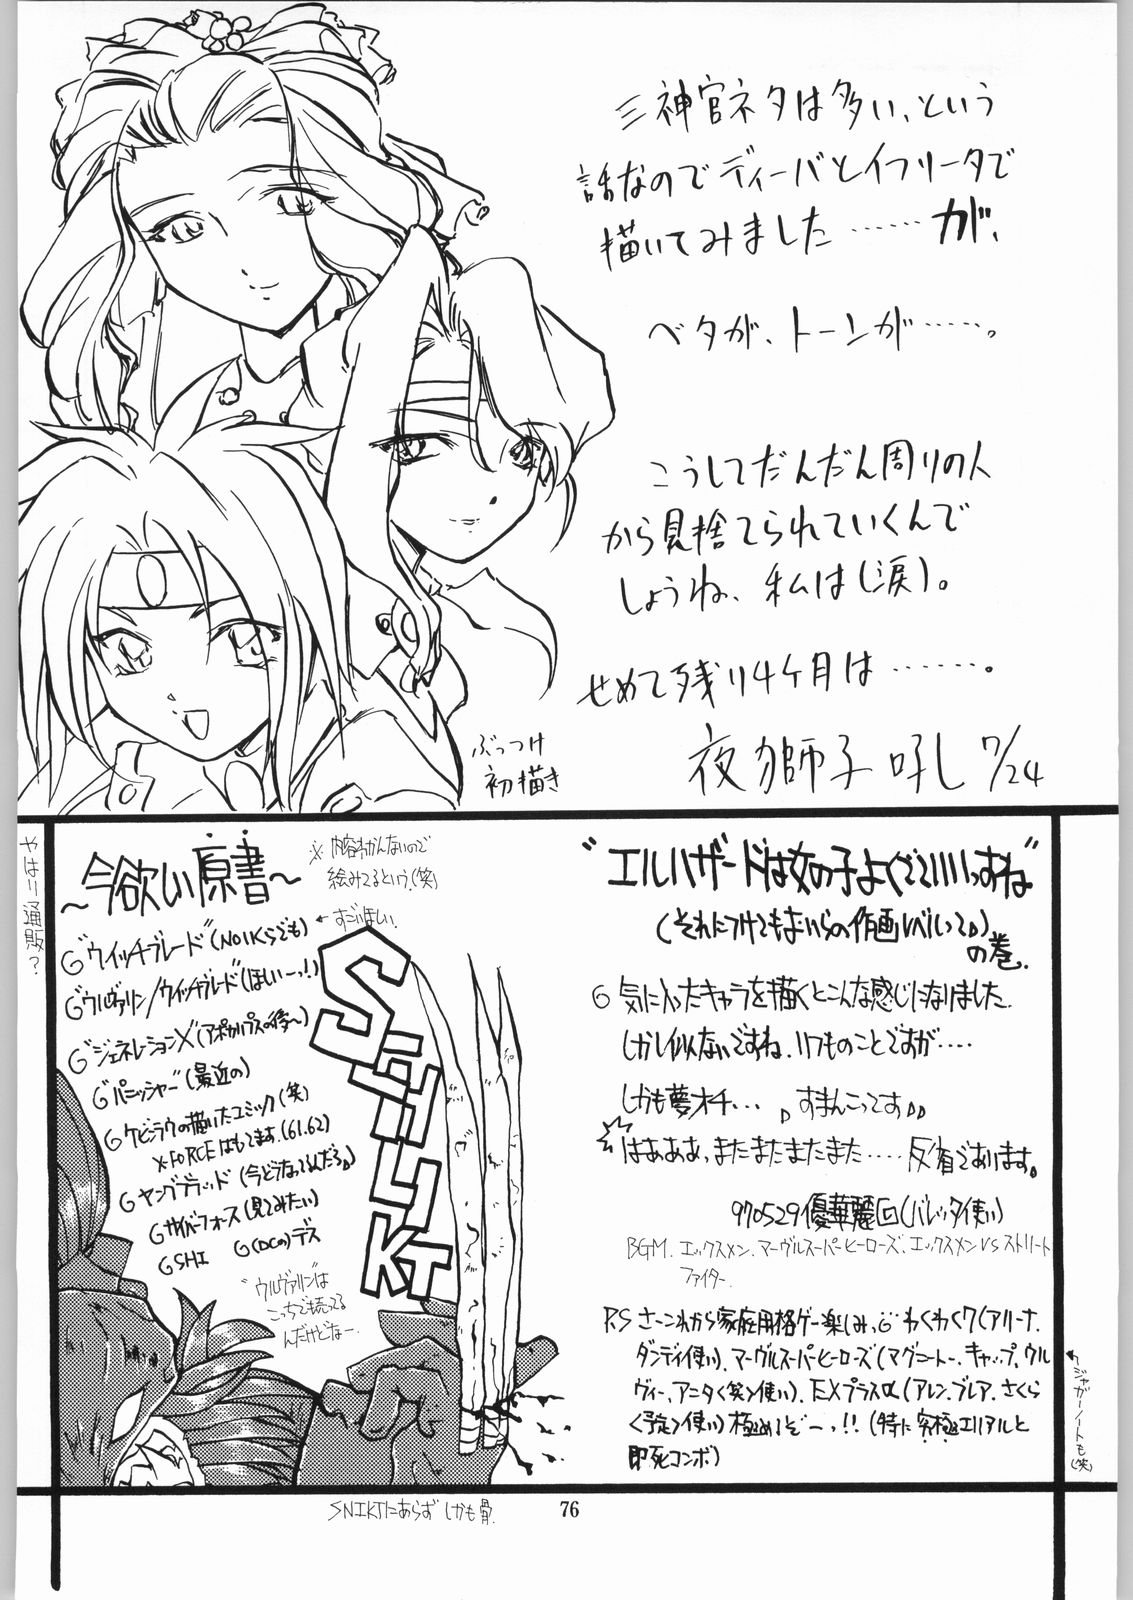 三神官ネタは多い、という
話なのでディーバとイフリータで
描いてみました……が、
ベタが、トーンが……。
こうしてだんだん周りの人
から見捨てられていくんで
しょうね、私は(涙)。
せめて残り4ヶ月は……。
夜獅子吼し 7/24
ぶっつけ
初描き
やはり通販?
~今欲しい原書~
※内容わかんないので
絵みてるという(笑)
"ウイッチブレード"(NO1Kらでも)
←すごいほしい
"ウルヴァリン/ウィッチブレード"(ほしいー!)
"ジェネレーションX"(アポカリプスの後〜)
"パニッシャー"(最近の)
ケビンラウの描いたコミック(笑)
X-FORCEはもてます。(61.62)
ヤングブラッド(今どうなってるんだろ)
サイバーフォース(見てみたい)
SHI
(DCの)デス
"ウルヴァリン"は
こっちでも売ってる
んだけどなー
"エルハザードは女の子よくてていいっすね"
(それにつけてもおいらの作画レベルって)
の巻.
気に入ったキャラを描くとこんな感じになりました.
しかし似ないですね.いつものことですが....
しかも夢オチ...すまんこってす
はあああ、またまたまたまた....反省であります。
970529優華麗回(バレッタ使い)
BGM.エックスメン.マーヴルスーパーヒーローズ.エックスメンVSストリート
ファイター.
P.S さーこれから家庭用格ゲー楽しみっ わくわく7(アリーナ.
ダンディ使い).マーヴルスーパーヒーローズ(マグニートー.キャップ.ウル
ヴィー.アニタ<笑>使い).EXプラスα(アレン.ブレア.さくら
<予定>使い)極めるぞーっ!!(特に究極エリアルと
即死コンボ)
ジャガーノートも(笑)
SNIKTにあらず しかも骨.
76